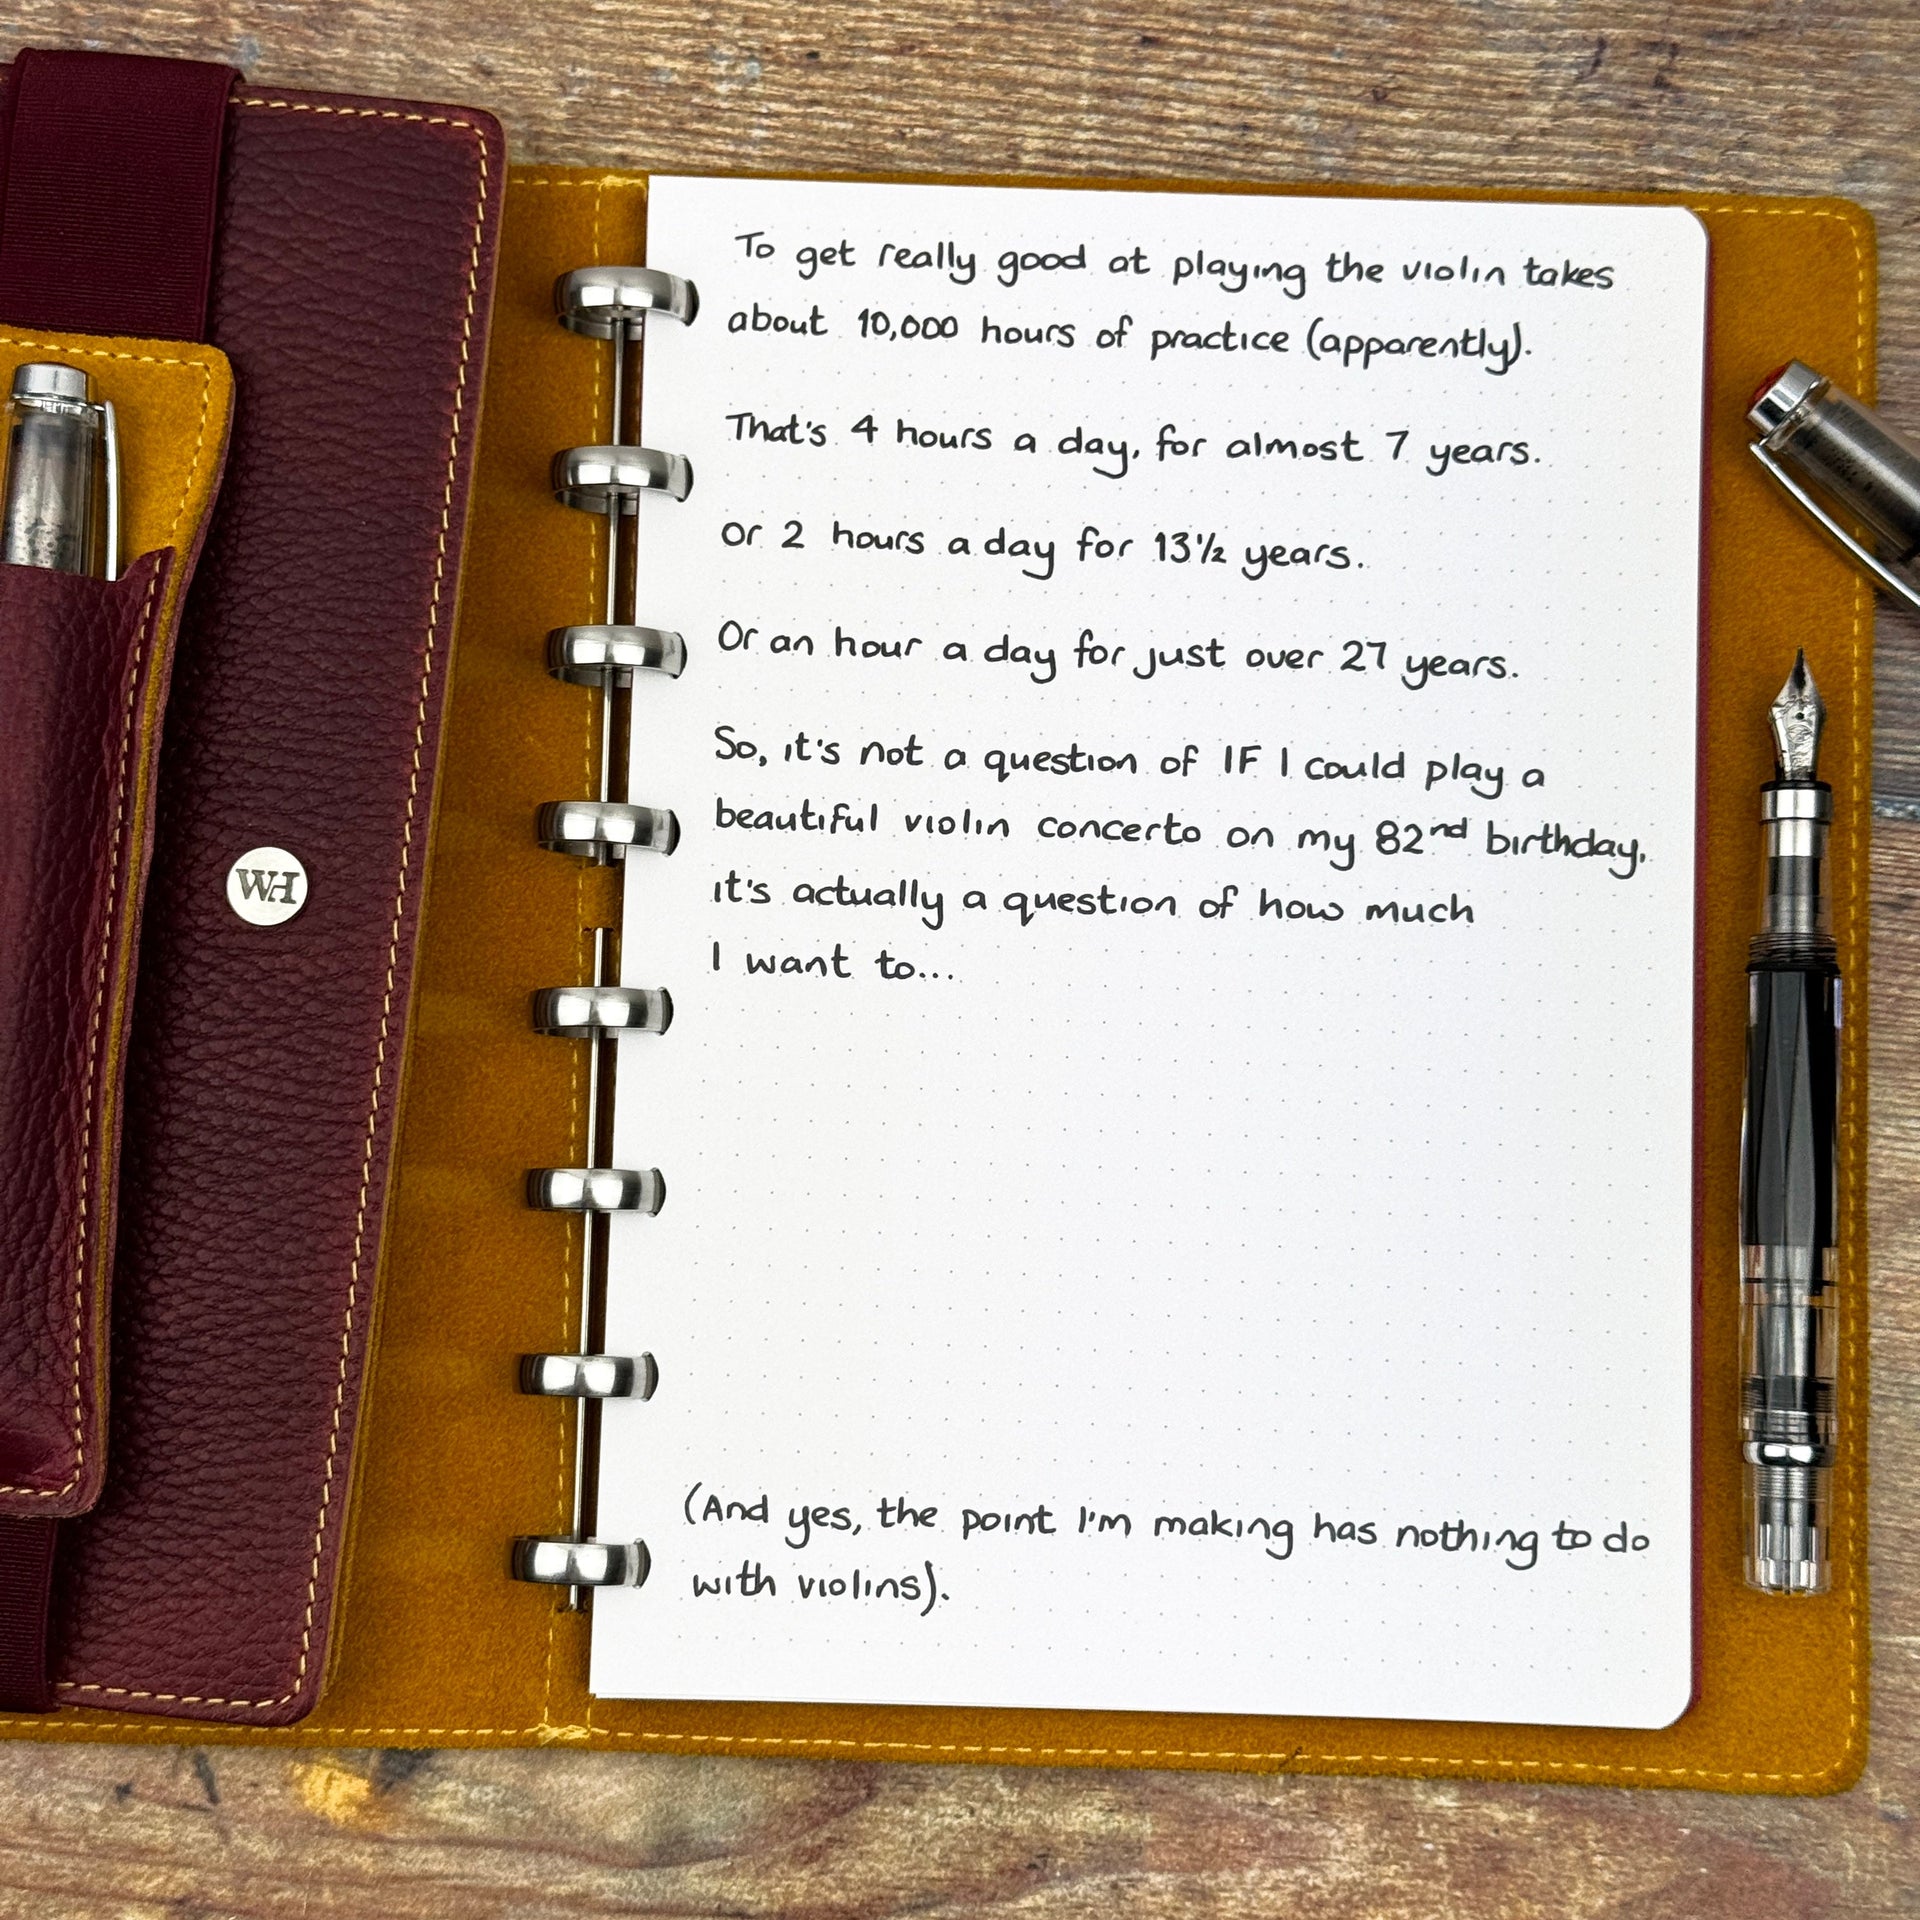 To get really good at playing the violin takes
about 10,000 hours of practice (apparently).
That's 4 hours a day, for almost 7 years.
or 2 hours a day for 13½ years.
Or an hour a day for just over 27 years.
So, it's not a question of IF I could play a
beautiful violin concerto on my 82nd birthday,
it's actually a question of how much
I want to...
(And yes, the point I'm making has nothing to do
with violins).
WH